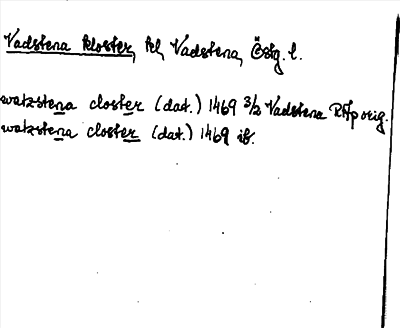 Vadstena kloster, kl, Vadstena, Östg. l.
watzstena closter (dat.) 1469 3/2 Vadstena RApp orig.
watzstena closter (dat.) 1469 ib.